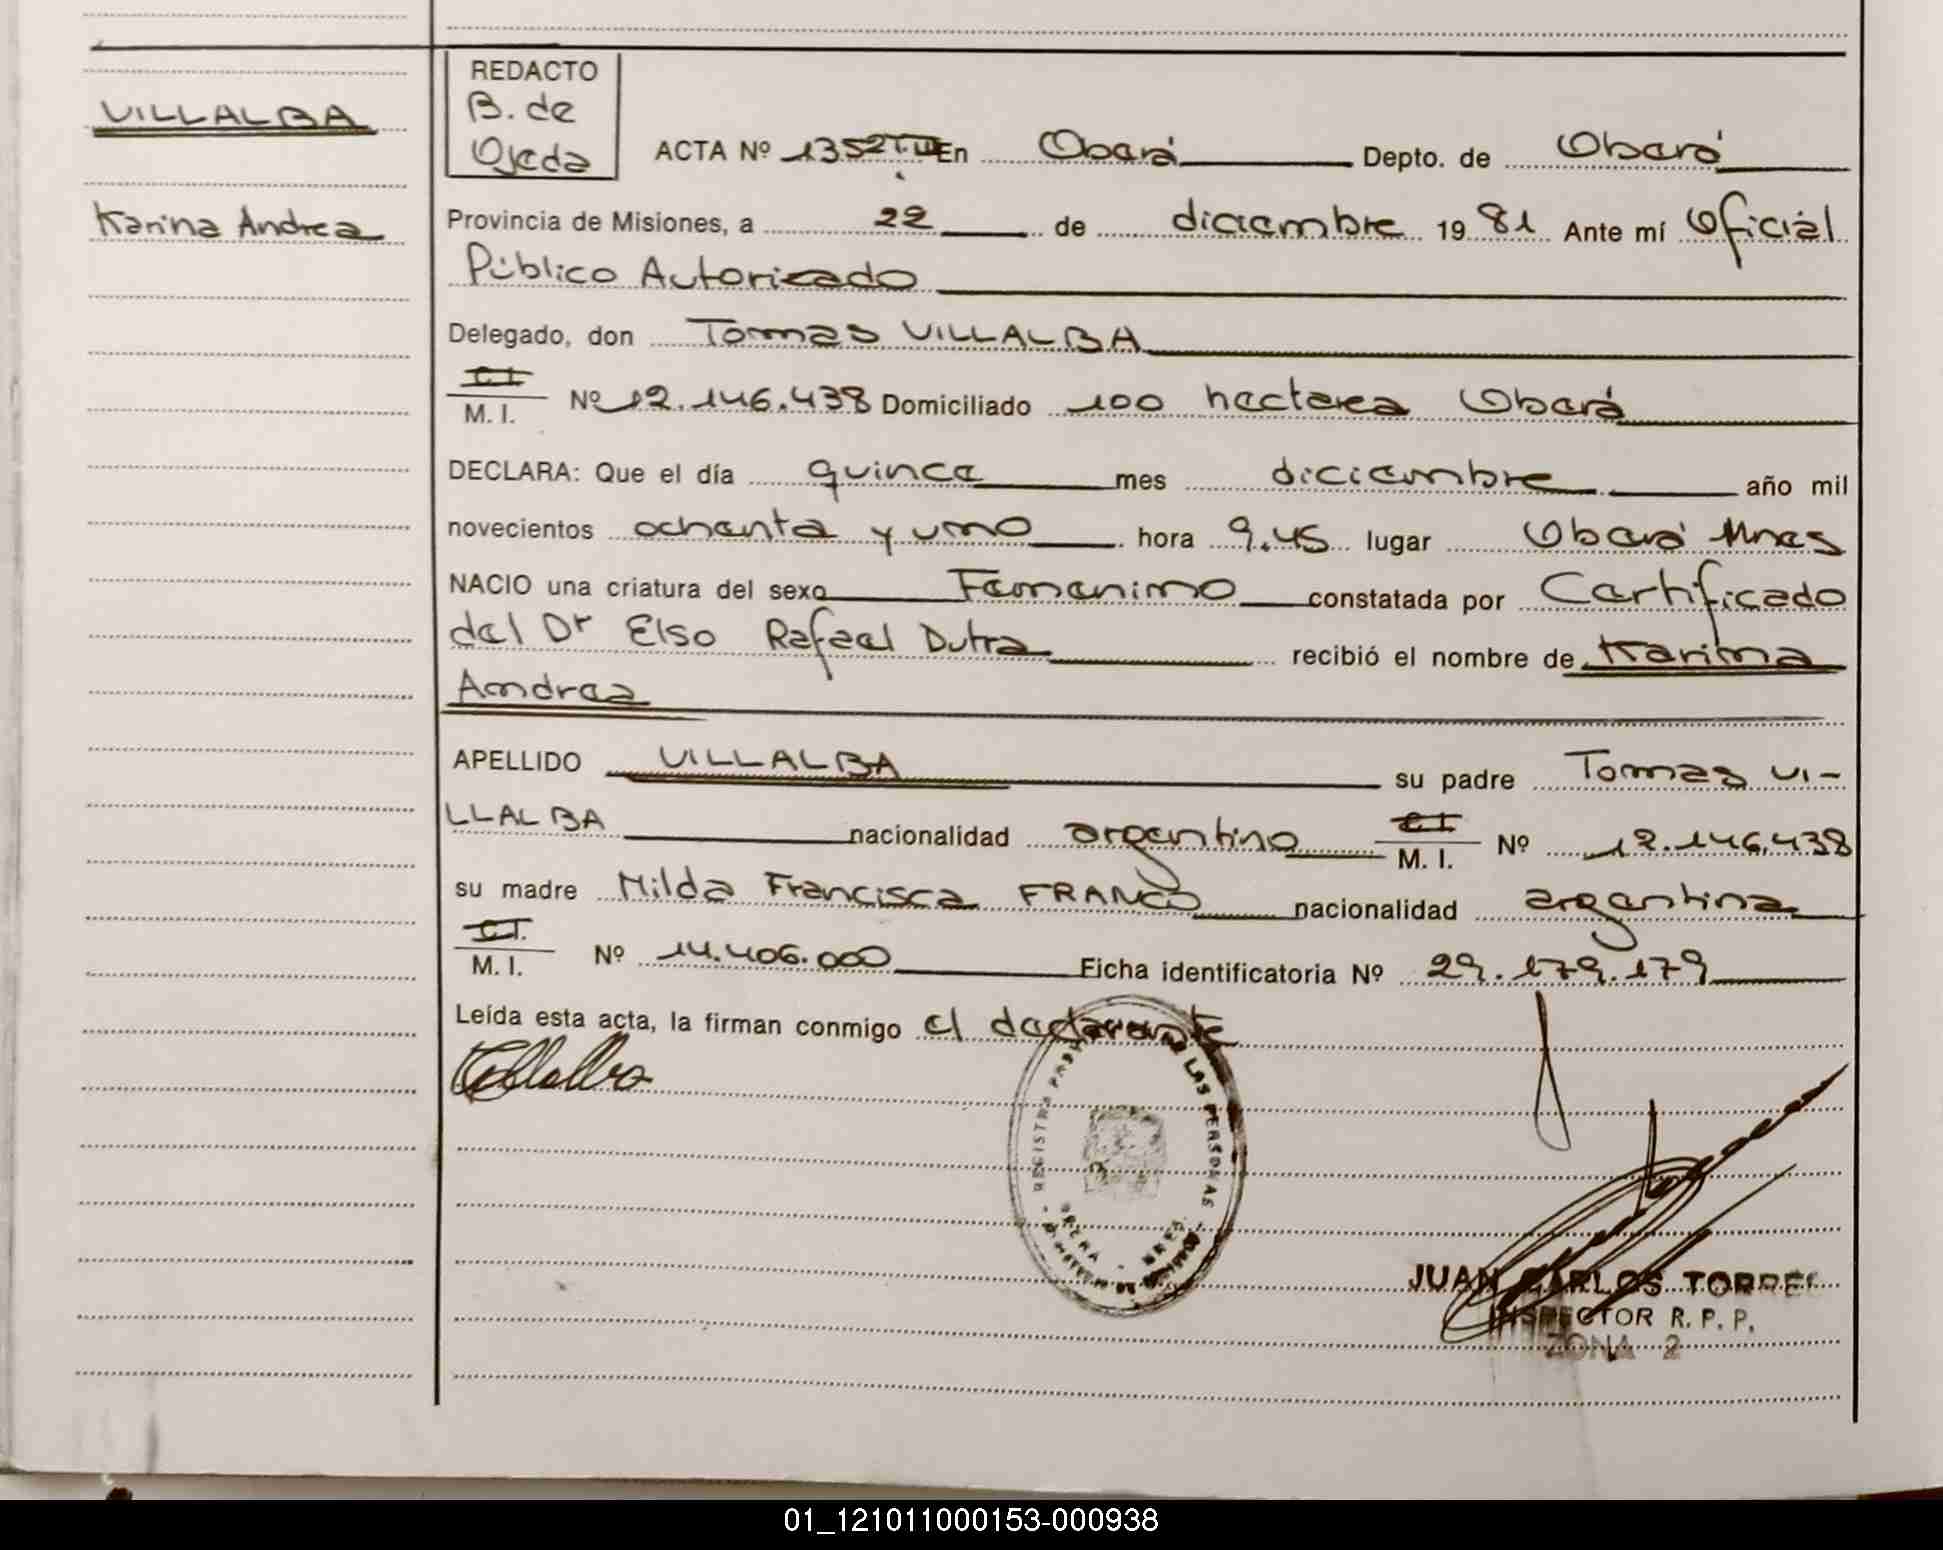 REDACTO
B. de
Ojeda
VILLALBA
Karina Andrea
ACTA Nº 1352 T.III En Oberá Depto. de Oberá
Provincia de Misiones, a 22 de diciembre 1981 Ante mí Oficial
Público Autorizado
Delegado, don Tomas VILLALBA
C.I.
M. I. Nº 12.146.438 Domiciliado 100 hectarea Oberá
DECLARA: Que el día quince mes diciembre año mil
novecientos ochenta y uno hora 9.45 lugar Oberá Mnes
NACIO una criatura del sexo Femenino constatada por Certificado
del Dr Elso Rafael Dutra recibió el nombre de Karina
Andrea
APELLIDO VILLALBA su padre Tomas VI-
LLALBA nacionalidad argentino C.I.
M. I. Nº 12.146.438
su madre Nilda Francisca FRANCO nacionalidad argentina
C.I.
M. I. Nº 14.406.000 Ficha identificatoria Nº 29.179.179
Leída esta acta, la firman conmigo el declarante
REGISTRO LAS PERSONAS
JUAN CARLOS TORRES
INSPECTOR R. P. P.
ZONA 2
01_121011000153-000938